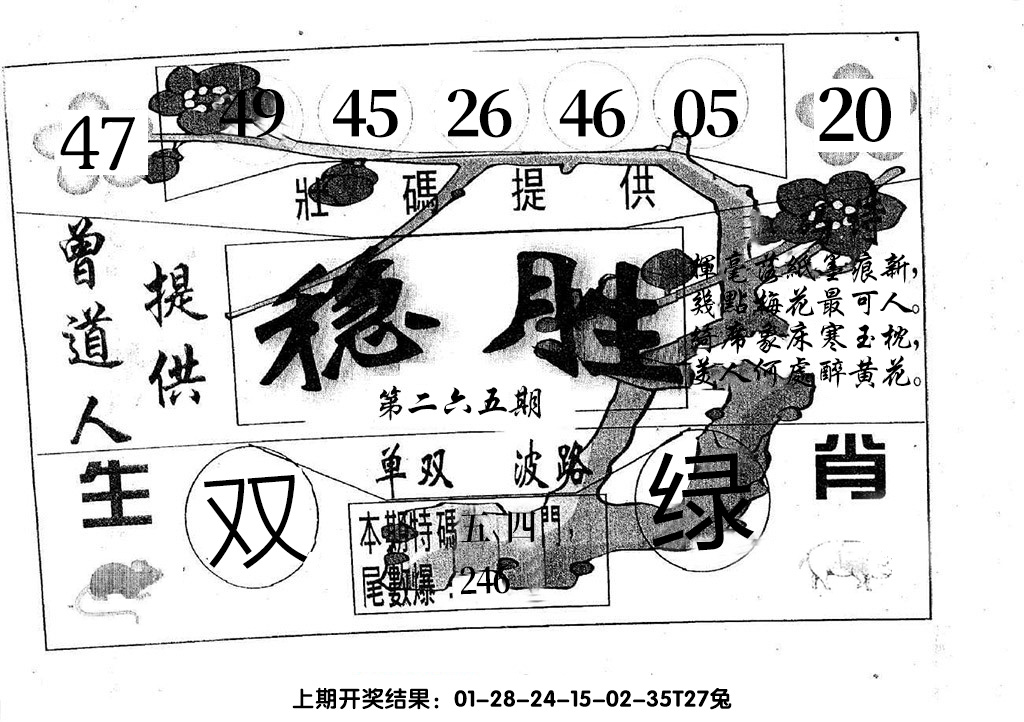 47 49 45 26 46 05 20
壯 碼 提 供
曾道人
提供
稳胜
第二六五期
揮毫落紙墨痕新,
幾點梅花最可人。
綺席象床寒玉枕,
美人何處醉黄花。
单双 波路
生肖
双
绿
本期特碼五、四門,
尾數爆:246
上期开奖结果:01-28-24-15-02-35T27兔